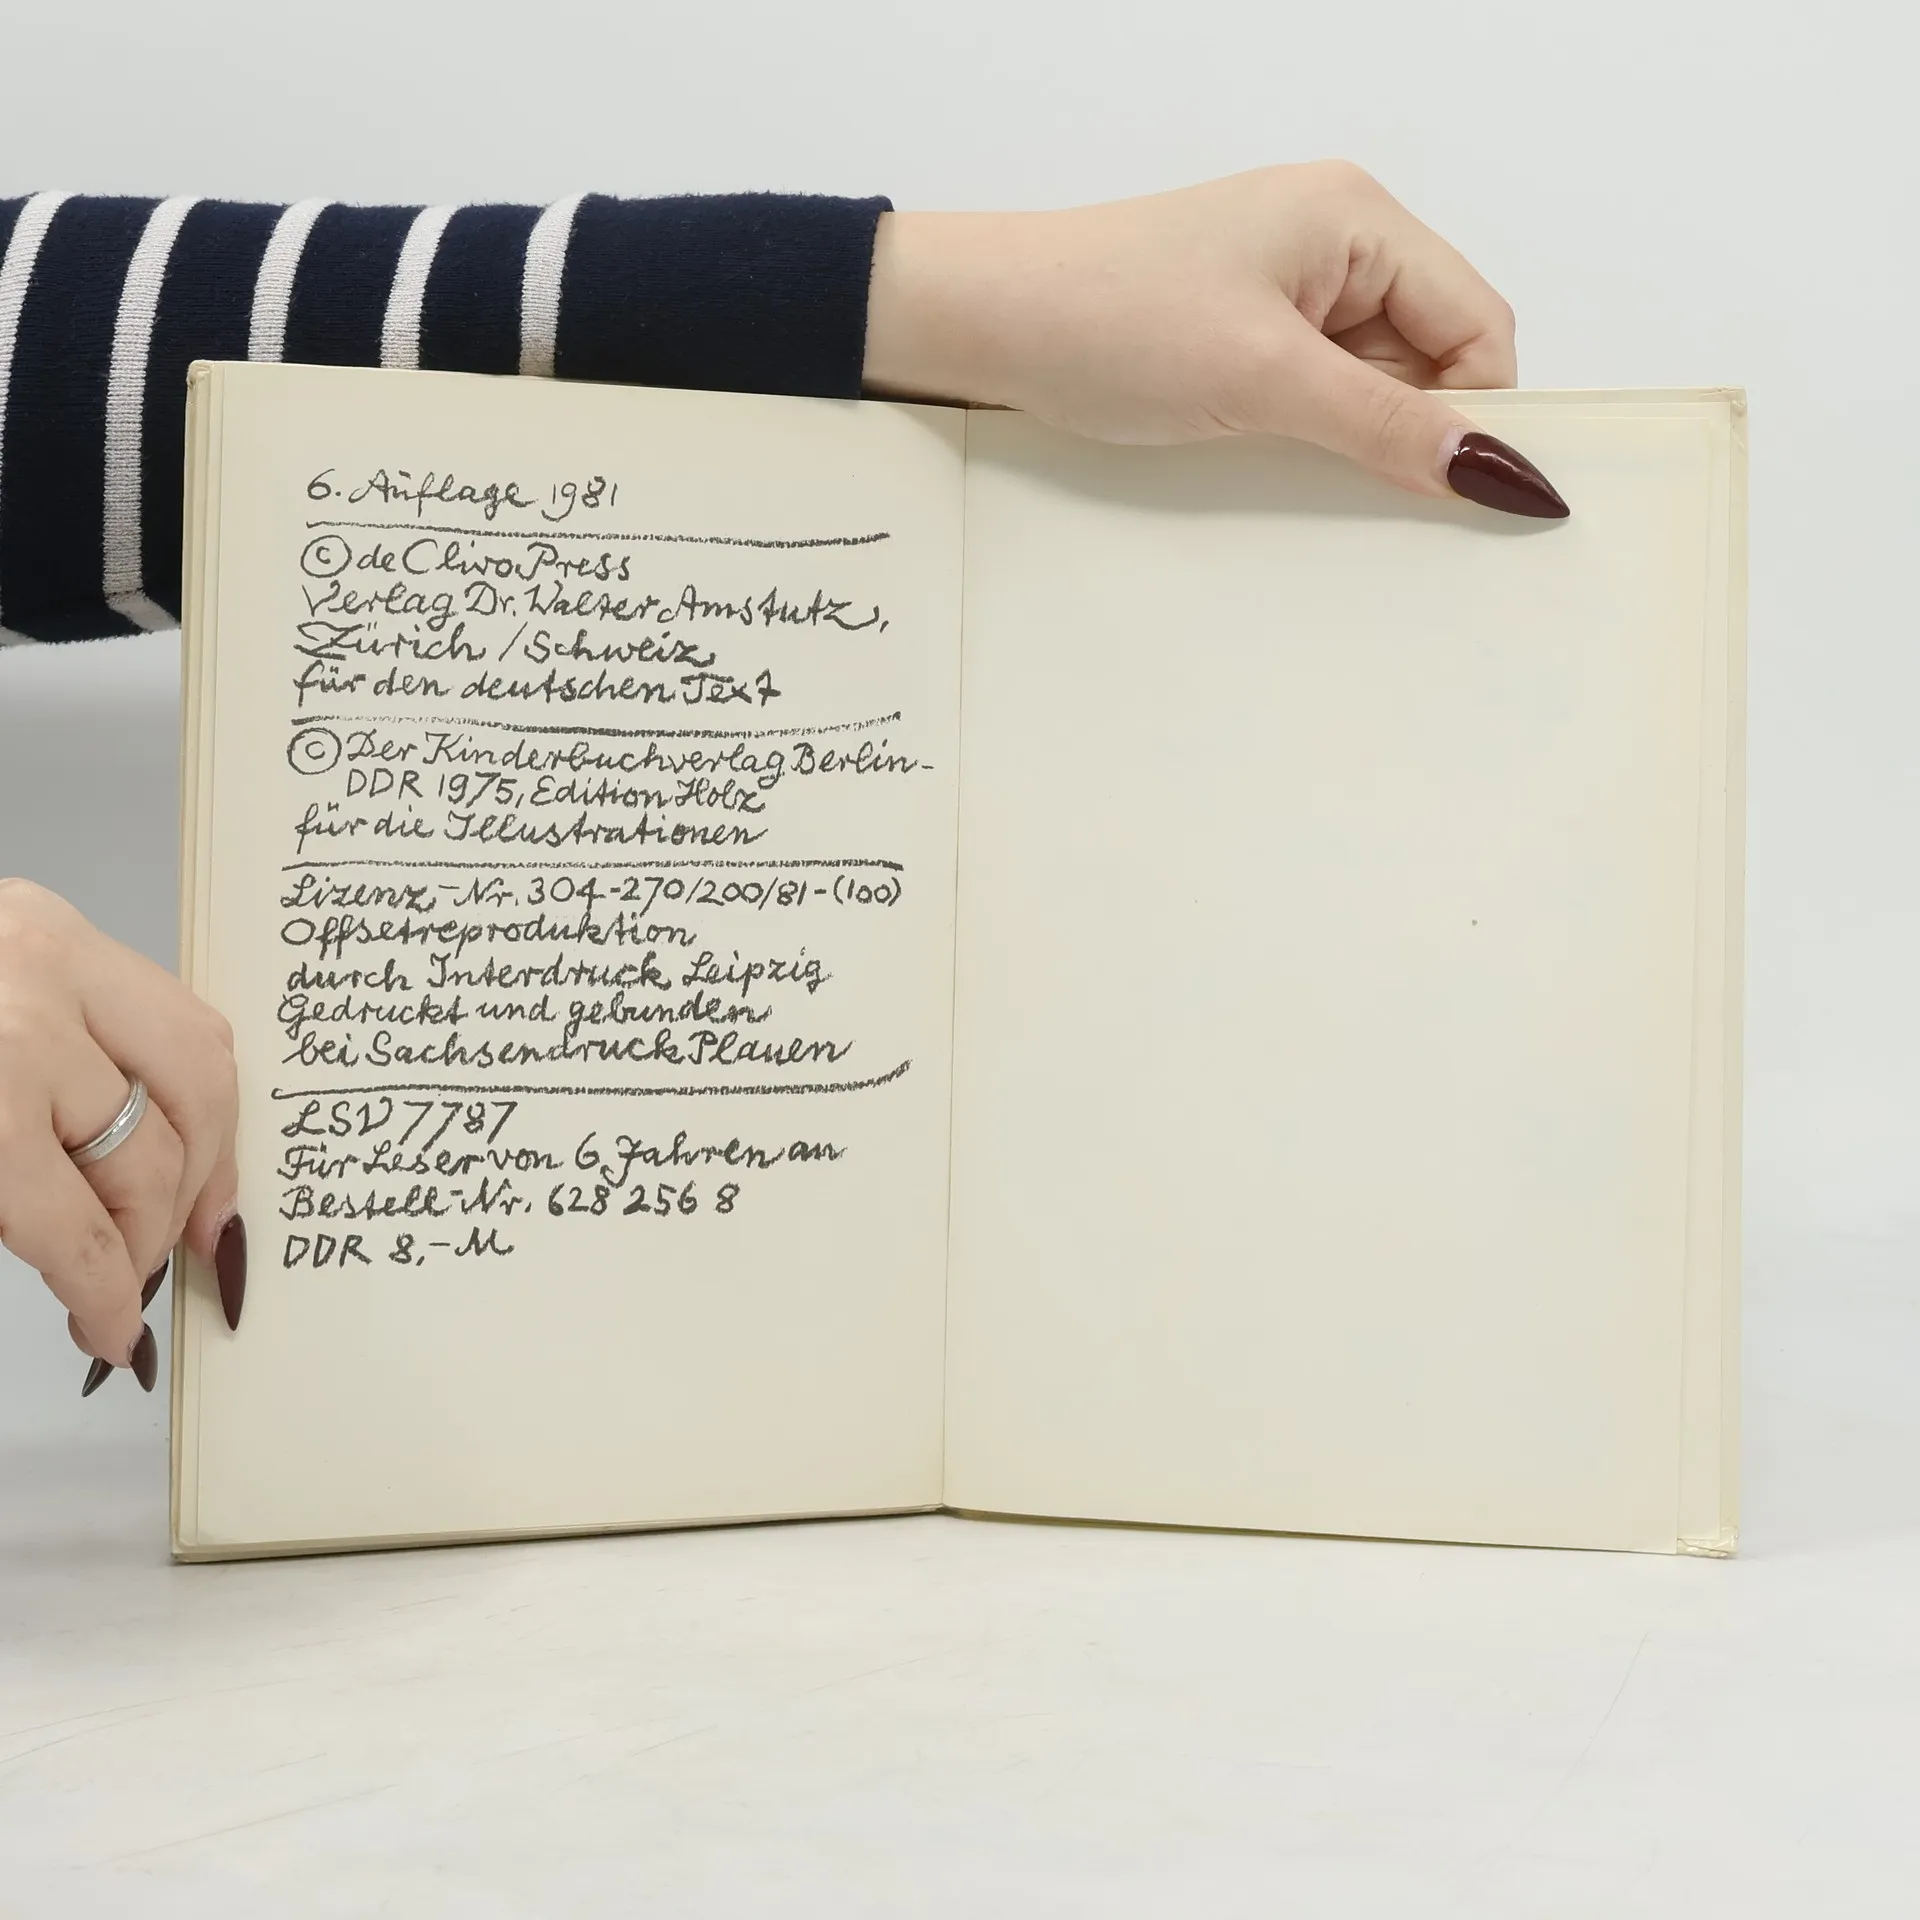 6. Auflage 1981
© de Clivo Press
Verlag Dr. Walter Amstutz,
Zürich / Schweiz
für den deutschen Text
© Der Kinderbuchverlag Berlin-
DDR 1975, Edition Holz
für die Illustrationen
Lizenz-Nr. 304-270/200/81-(100)
Offsetreproduktion
durch Interdruck Leipzig
Gedruckt und gebunden
bei Sachsendruck Plauen
LSV 7787
Für Leser von 6 Jahren an
Bestell-Nr. 628 256 8
DDR 8,-M